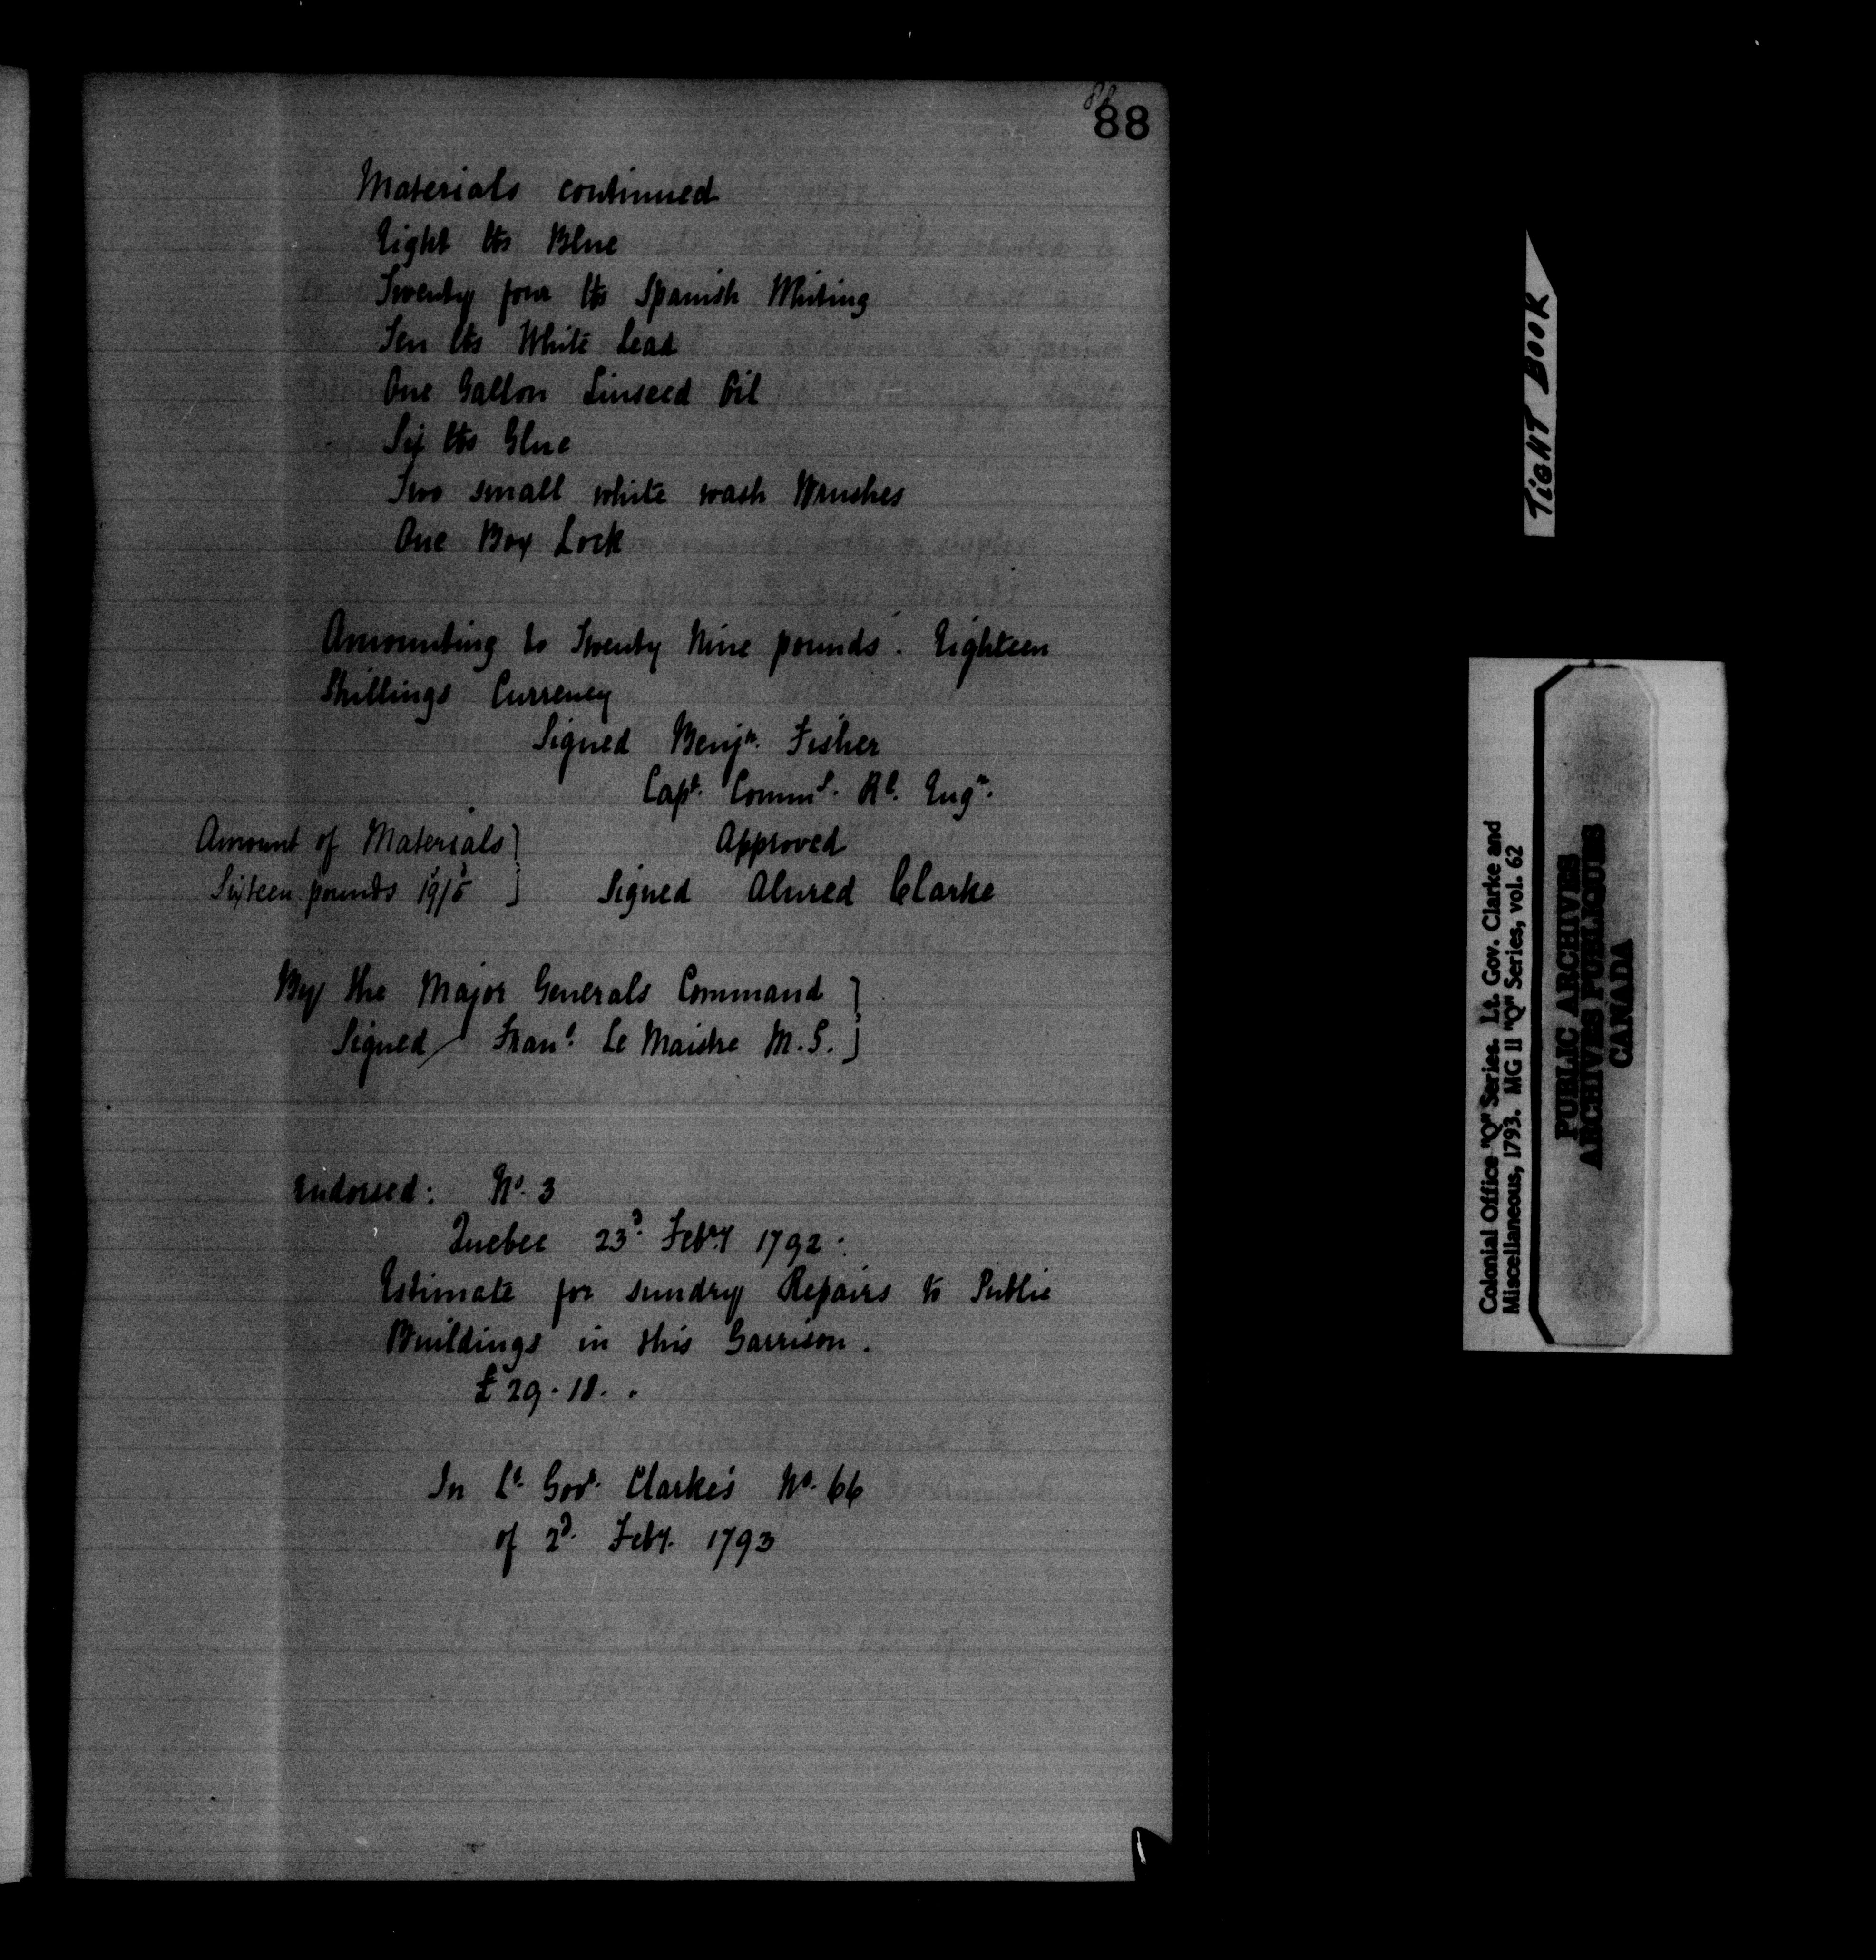 88
88
Materials continued
Eight lbs Blue
Twenty four lbs Spanish Whiting
Ten lbs White Lead
One Gallon Linseed Oil
Six lbs Glue
Two small white wash Brushes
One Box Lock
Amounting to Twenty Nine pounds. Eighteen
Shillings Currency
Signed Benjn. Fisher
Capt. Commg. Rl. Engr.
Amount of Materials
Sixteen pounds 19/5
Approved
Signed Alured Clarke
By the Major Generals Command
Signed/ Frans. Le Maistre M.S.
Endorsed: No. 3
Quebec 23d. Feby 1792.
Estimate for sundry Repairs to Public
Buildings in this Garrison.
£29.18..
In Lt. Govr. Clarke's No. 66
of 2d. Feby. 1793
TIGHT BOOK
Colonial Office "Q" Series. Lt. Gov. Clarke and
Miscellaneous, 1793. MG 11 "Q" Series, vol. 62
PUBLIC ARCHIVES
ARCHIVES PUBLIQUES
CANADA